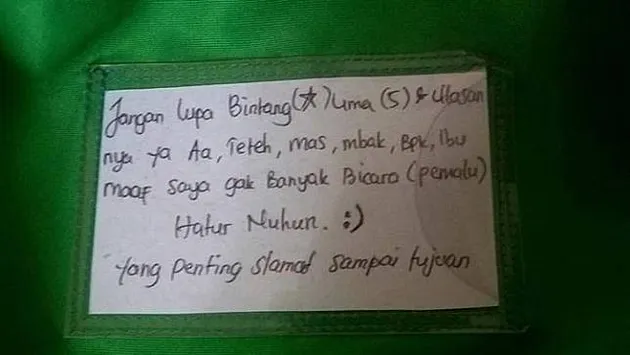 Jangan lupa Bintang (★) lima (5) & Ulasan
nya ya Aa, Teteh, mas, mbak, Bpk, Ibu
maaf saya gak Banyak Bicara (pemalu)
Hatur Nuhun. :)
yang penting slamat sampai tujuan